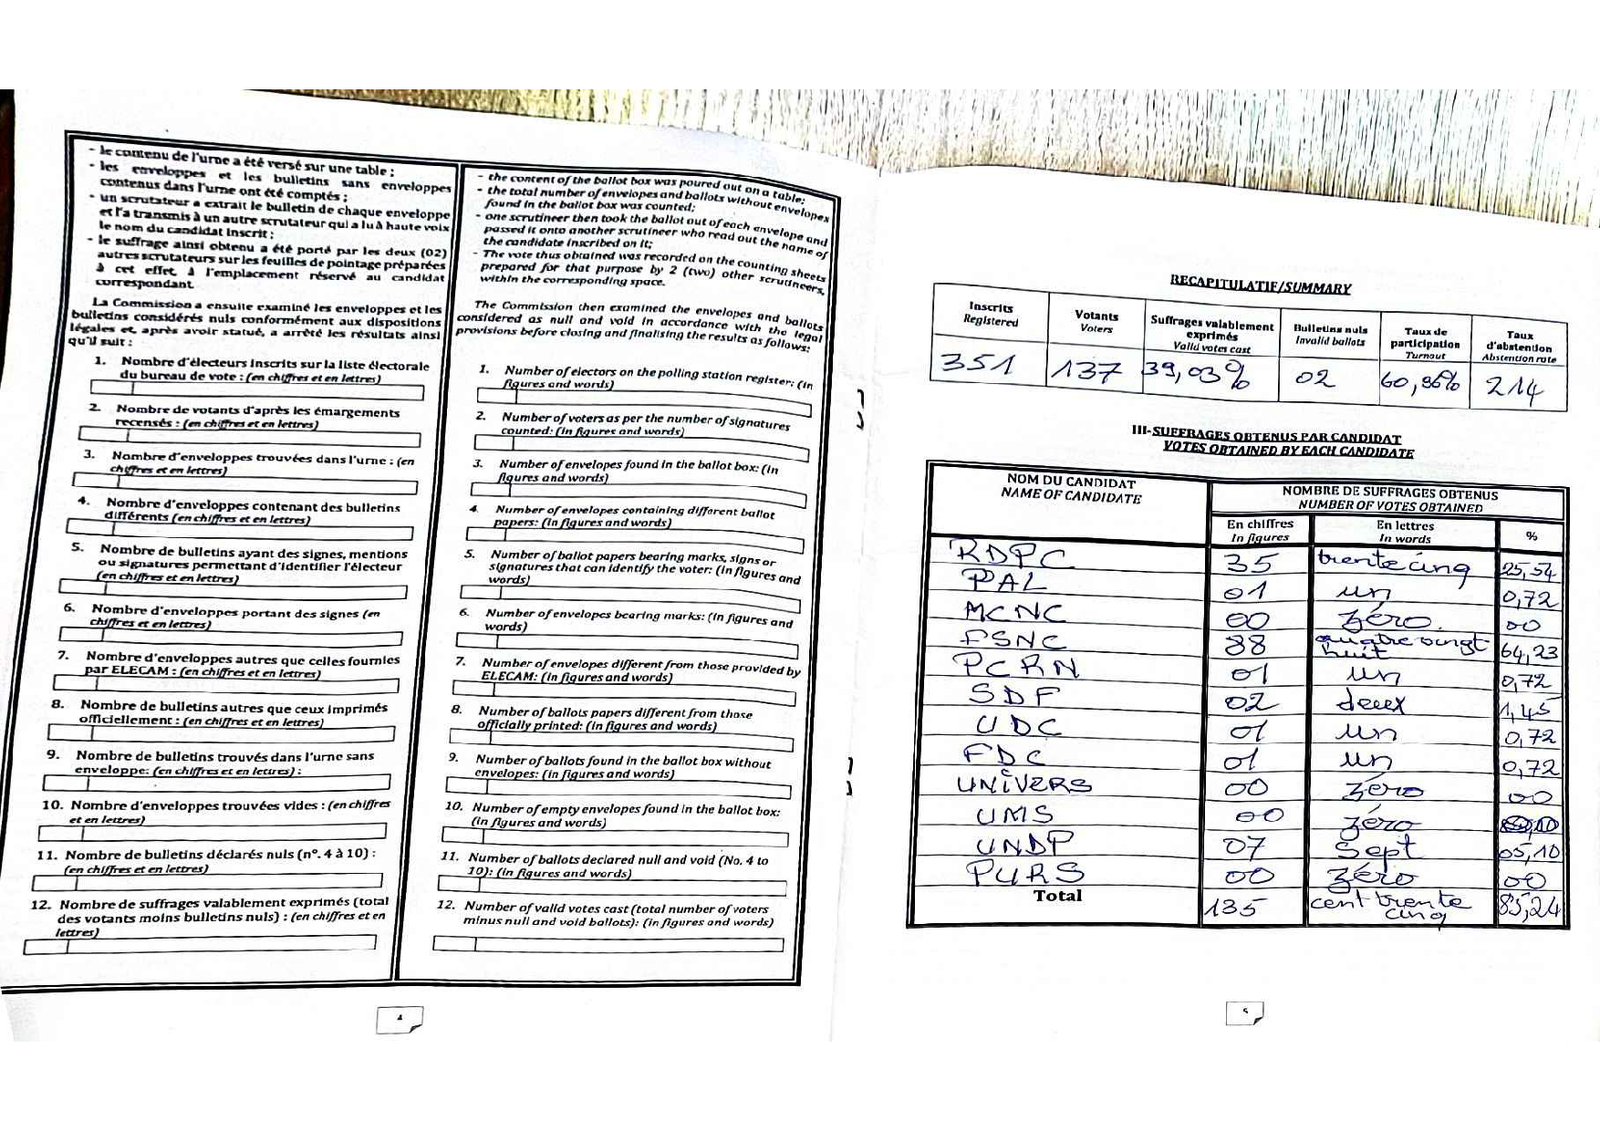 - le contenu de l'urne a été versé sur une table ;
- les enveloppes et les bulletins sans enveloppes
contenus dans l'urne ont été comptés ;
- un scrutateur a extrait le bulletin de chaque enveloppe
et l'a transmis à un autre scrutateur qui a lu à haute voix
le nom du candidat inscrit ;
- le suffrage ainsi obtenu a été porté par les deux (02)
autres scrutateurs sur les feuilles de pointage préparées
à cet effet, à l'emplacement réservé au candidat
correspondant.
La Commission a ensuite examiné les enveloppes et les
bulletins considérés nuls conformément aux dispositions
légales et, après avoir statué, a arrêté les résultats ainsi
qu'il suit :
1. Nombre d'électeurs inscrits sur la liste électorale
du bureau de vote : (en chiffres et en lettres)
2. Nombre de votants d'après les émargements
recensés : (en chiffres et en lettres)
3. Nombre d'enveloppes trouvées dans l'urne : (en
chiffres et en lettres)
4. Nombre d'enveloppes contenant des bulletins
différents (en chiffres et en lettres)
5. Nombre de bulletins ayant des signes, mentions
ou signatures permettant d'identifier l'électeur
(en chiffres et en lettres)
6. Nombre d'enveloppes portant des signes (en
chiffres et en lettres)
7. Nombre d'enveloppes autres que celles fournies
par ELECAM : (en chiffres et en lettres)
8. Nombre de bulletins autres que ceux imprimés
officiellement : (en chiffres et en lettres)
9. Nombre de bulletins trouvés dans l'urne sans
enveloppe: (en chiffres et en lettres) :
10. Nombre d'enveloppes trouvées vides : (en chiffres
et en lettres)
11. Nombre de bulletins déclarés nuls (n°. 4 à 10) :
(en chiffres et en lettres)
12. Nombre de suffrages valablement exprimés (total
des votants moins bulletins nuls) : (en chiffres et en
lettres)
- the content of the ballot box was poured out on a table;
- the total number of envelopes and ballots without envelopes
found in the ballot box was counted;
- one scrutineer then took the ballot out of each envelope and
passed it onto another scrutineer who read out the name of
the candidate inscribed on it;
- The vote thus obtained was recorded on the counting sheets
prepared for that purpose by 2 (two) other scrutineers,
within the corresponding space.
The Commission then examined the envelopes and ballots
considered as null and void in accordance with the legal
provisions before closing and finalising the results as follows:
1. Number of electors on the polling station register: (in
figures and words)
2. Number of voters as per the number of signatures
counted: (in figures and words)
3. Number of envelopes found in the ballot box: (in
figures and words)
4. Number of envelopes containing different ballot
papers: (in figures and words)
5. Number of ballot papers bearing marks, signs or
signatures that can identify the voter: (in figures and
words)
6. Number of envelopes bearing marks: (in figures and
words)
7. Number of envelopes different from those provided by
ELECAM: (in figures and words)
8. Number of ballots papers different from those
officially printed: (in figures and words)
9. Number of ballots found in the ballot box without
envelopes: (in figures and words)
10. Number of empty envelopes found in the ballot box:
(in figures and words)
11. Number of ballots declared null and void (No. 4 to
10): (in figures and words)
12. Number of valid votes cast (total number of voters
minus null and void ballots): (in figures and words)
4
RECAPITULATIF/SUMMARY
Inscrits Registered
Votants Voters
Suffrages valablement exprimés Valid votes cast
Bulletins nuls Invalid ballots
Taux de participation Turnout
Taux d'abstention Abstention rate
351 137 39,03% 02 60,96% 214
III-SUFFRAGES OBTENUS PAR CANDIDAT
VOTES OBTAINED BY EACH CANDIDATE
NOM DU CANDIDAT
NAME OF CANDIDATE
NOMBRE DE SUFFRAGES OBTENUS
NUMBER OF VOTES OBTAINED
En chiffres In figures
En lettres In words
%
RDPC 35 trente cinq 25,54
PAL 01 un 0,72
MCNC 00 zéro 00
FSNC 88 quatre vingt huit 64,23
PCRN 01 un 0,72
SDF 02 deux 1,45
UDC 01 un 0,72
FDC 01 un 0,72
UNIVERS 00 zéro 00
UMS 00 zéro
UNDP 07 sept 05,10
PURS 00 zéro 00
Total 135 cent trente cinq 85,24
5